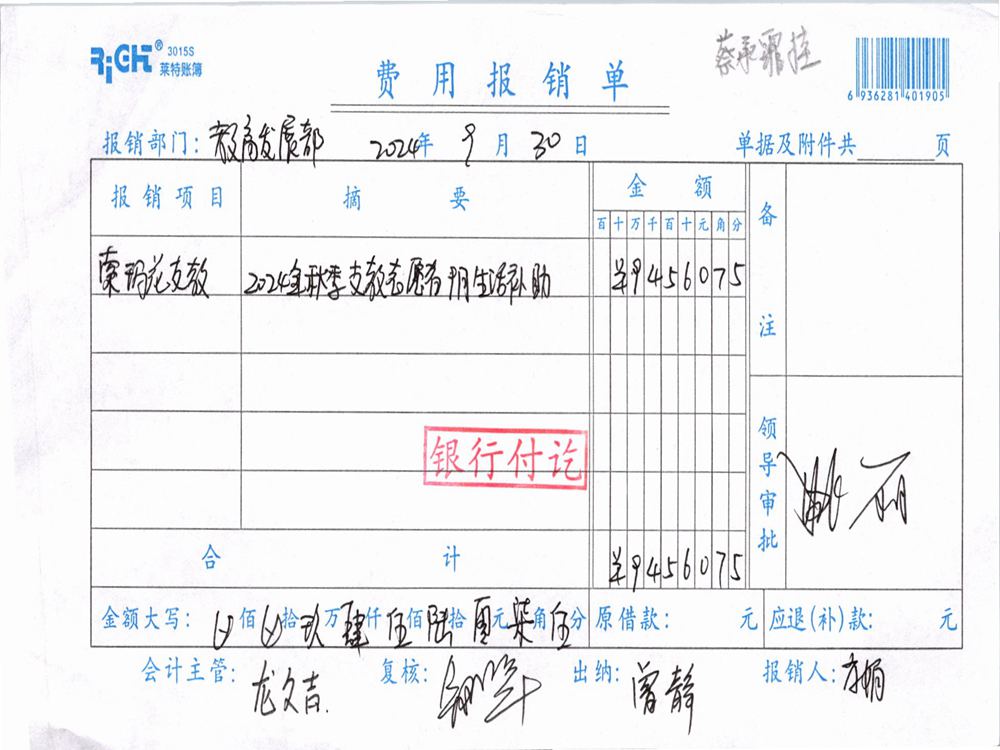 RiGHT® 3015S
莱特账簿
费用报销单
蔡承霏挂
6 936281 401905
报销部门：教育发展部 2024年 9月 30日 单据及附件共 页
报销项目 摘要 金额 备注
百十万千百十元角分
索玛花支教 2024年秋季支教志愿者9月生活补助 ¥9456075
银行付讫
领导审批
合计 ¥9456075
金额大写： ㄨ佰ㄨ拾玖万肆仟伍佰陆拾零元柒角伍分 原借款： 元 应退(补)款： 元
会计主管：龙文吉 复核： 出纳：曾静 报销人：方娟